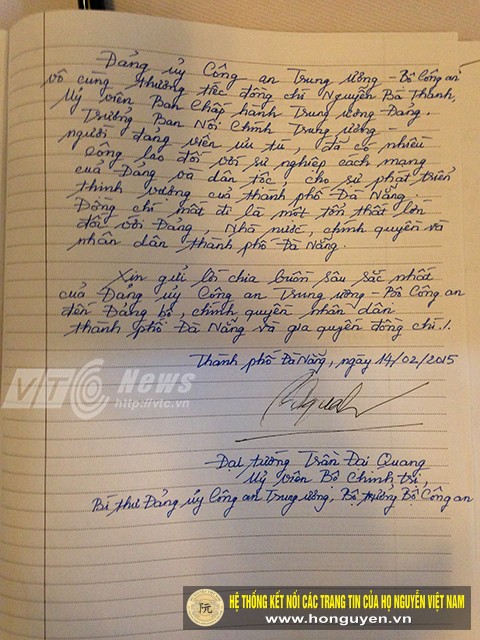 Đảng ủy Công an Trung ương - Bộ Công an
vô cùng thương tiếc đồng chí Nguyễn Bá Thanh,
Ủy viên Ban Chấp hành Trung ương Đảng,
Trưởng Ban Nội Chính Trung ương -
người đảng viên ưu tú, đã có nhiều
công lao đối với sự nghiệp cách mạng
của Đảng và dân tộc, cho sự phát triển
thịnh vượng của thành phố Đà Nẵng.
Đồng chí mất đi là một tổn thất lớn
đối với Đảng, Nhà nước, chính quyền và
nhân dân thành phố Đà Nẵng.
Xin gửi lời chia buồn sâu sắc nhất
của Đảng ủy Công an Trung ương - Bộ Công an
đến Đảng bộ, chính quyền nhân dân
thành phố Đà Nẵng và gia quyến đồng chí./.
Thành phố Đà Nẵng, ngày 14/02/2015
VTC News
http://vtc.vn
Đại tướng Trần Đại Quang
Ủy viên Bộ Chính trị,
Bí thư Đảng ủy Công an Trung ương, Bộ trưởng Bộ Công an
HỆ THỐNG KẾT NỐI CÁC TRANG TIN CỦA HỌ NGUYỄN VIỆT NAM
www.honguyen.vn